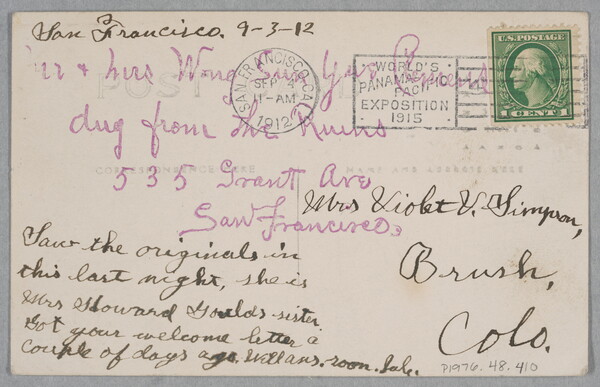 San Francisco. 9-3-12
Mr & Mrs Wong Sun Yue
dug from the Ruins
535 Grant Ave
San Francisco.
SAN FRANCISCO, CAL.
SEP 4
11-AM
1912
WORLD'S
PANAMA-PACIFIC
EXPOSITION
1915
U.S. POSTAGE
1 CENT 1
POST
CORRESPONDENCE HERE
NAME AND ADDRESS HERE
Mrs Violet V. Simpson,
Brush,
Colo.
Saw the originals in
this last night, she is
Mrs Howard Goulds sister
Got your welcome letter a
couple of days ago. Will ans. soon.
P1976.48.410